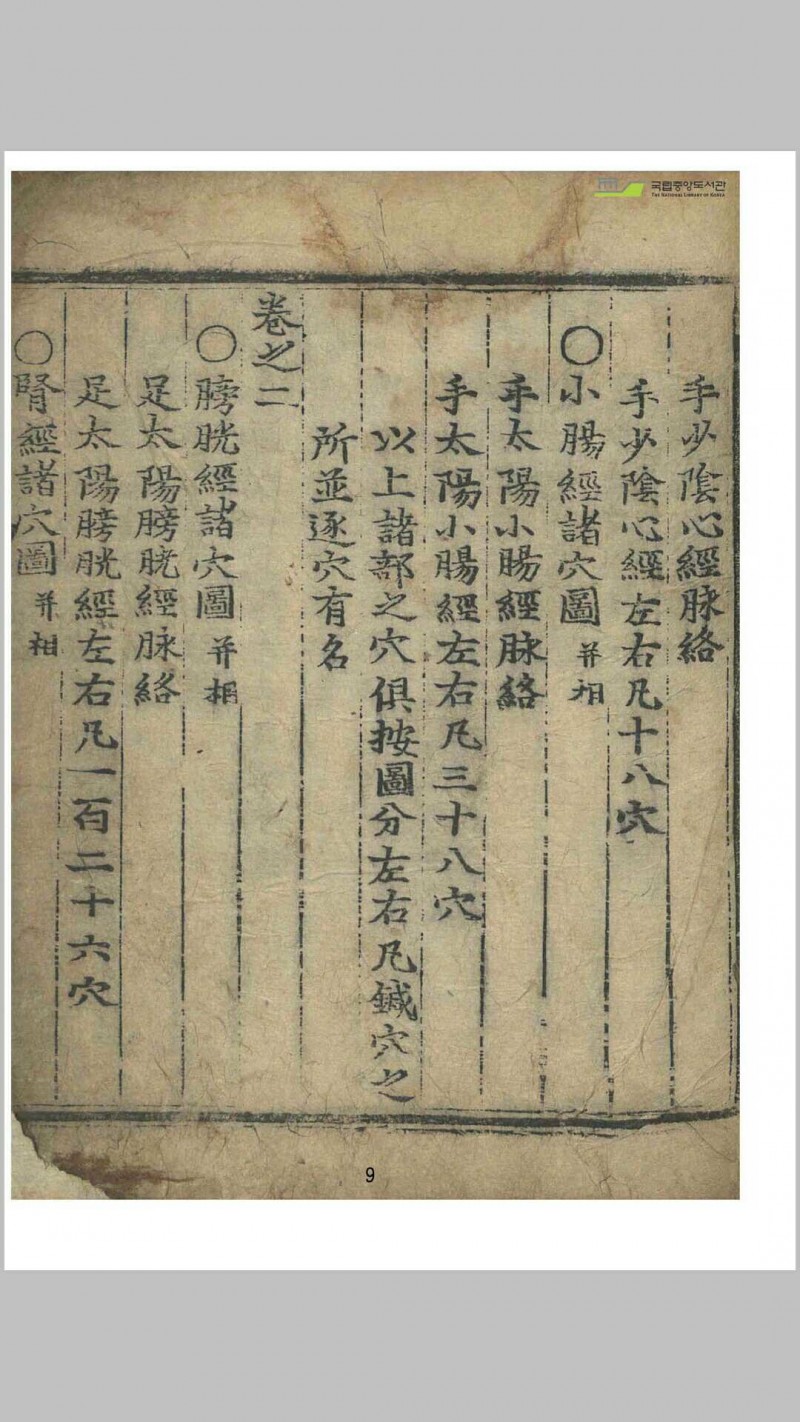 국립중앙도서관
THE NATIONAL LIBRARY OF KOREA
手少陰心經脉絡
手少陰心經左右凡十八穴
〇小腸經諸穴圖 并相
手太陽小腸經脉絡
手太陽小腸經左右凡三十八穴
以上諸部之穴俱按圖分左右凡鍼穴之
所並逐穴有名
卷之二
〇膀胱經諸穴圖 并相
足太陽膀胱經脉絡
足太陽膀胱經左右凡一百二十六穴
〇腎經諸穴圖 并相
9